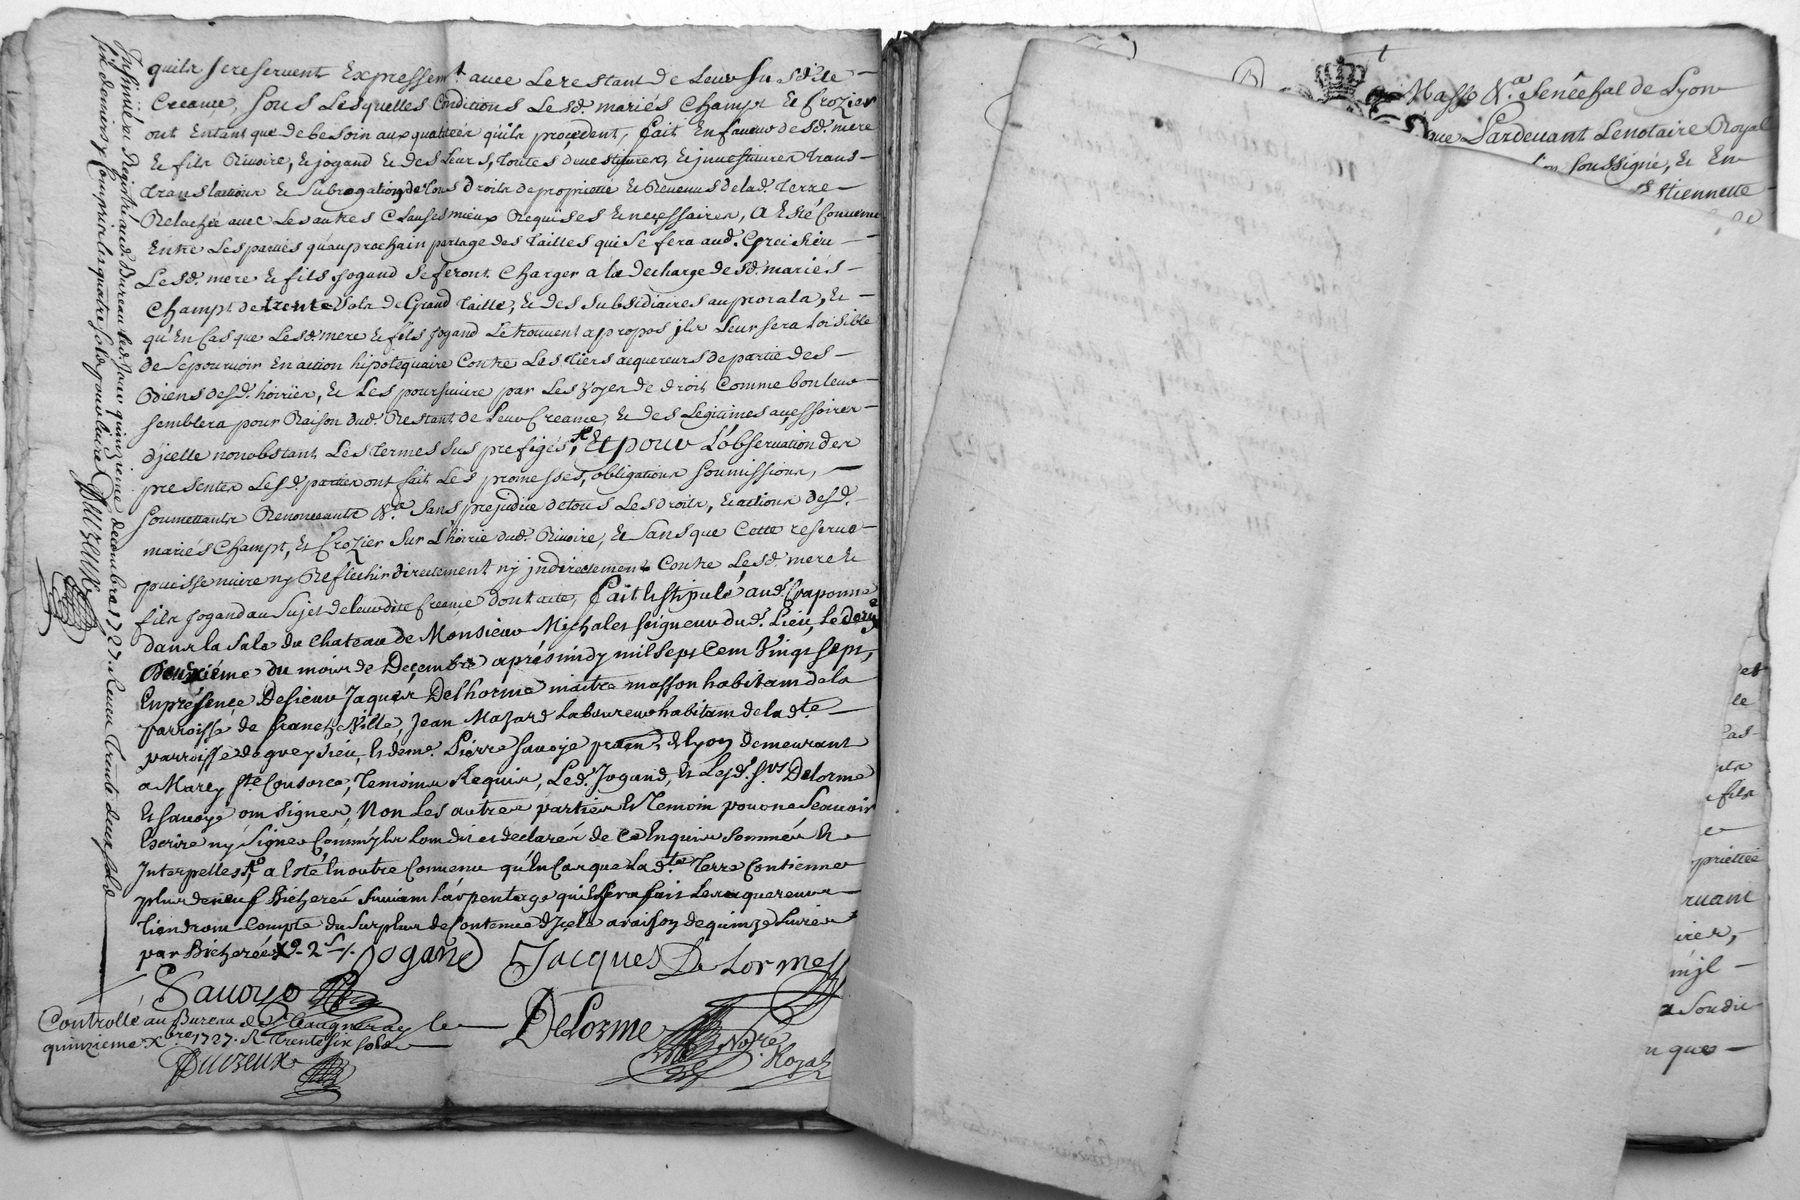 quils se reservent Expressemt. avec Le restant de Leur Susdite
Creance, sous Lesquelles Conditions Lesd. mariés Champt Et Crozier
ont Entant que de besoin aux qualitées qu'ils procedent, fait En faveur desd. mere
Et fils Rivoire, Et jogand Et des Leurs, toutes devestitures, Et jnvestitures trans-
translations Et subrogations de tous droits de proprieté Et Revenus de lad. terre
Relachée avec Les autres Clauses mieux Requises Et necessaires, A Esté Convenu
Entre Les parties qu'au prochain partage des tailles qui se fera aud. Greisieu
Lesd. mere Et fils Jogand se feront Charger a la decharge desd. mariés
Champt de trente sols de Grand taille, Et des subsidiaires au prorata, Et
qu'En Cas que Lesd. mere Et fils Jogand Le trouvent a propos jls Leur sera loisible
de se pourvoir En action hipotequaire Contre Les tiers acquereurs de partie des
Biens desd. hoiries, Et Les poursuivre par Les voyes de droit Comme bon leur
semblera pour Raison dud. Restant de Leur Creance, Et des Legitimes accessoires
d'jcelle nonobstant Les termes sus prefigés, Et pour L'observation des
presentes Lesd. parties ont fait Les promesses, obligations soumissions,
soumettants Renonceants &ca. sans prejudice de tous Les droits, Et actions desd.
mariés Champt, Et Crozier sur L'hoirie dud. Rivoire, Et sans que Cette reserve
puisse nuire ny Reflechir directement ny jndirectement Contre Lesd. mere Et
fils Jogand au sujet de leur dite Creance dont acte, fait Et stipulé aud. Craponne
dans la sale du chateau de Monsieur Michalet seigneur dud. Lieu, Le
Deuxiéme du mois de Decembre aprés midy mil sept Cent Vingt sept,
En présence De sieur Jaques Delhorme maitre masson habitant de la
parroisse de francheville, Jean Mazard Laboureur habitant de lad.te
parroisse de greysieu, Et deme. Pierre savoye de Lyon demeurant
a Marcy ste. Consorce, temoins Requis, Led. Jogand, Et Lesd. srs Delorme
Et savoye ont signes, Non Les autres parties Et temoin pour ne scavoir
Escrire ny signer Comm'jls L'ont dit et declarés de ce Enquis sommés Et
Interpelles, a Esté En outre Convenu qu'En Cas que La d.te terre Contienne
plus de neuf Bicherés suivant L'arpentage quil sera fait Les acquereurs
tiendront Compte du surplus de Contenue d'jcelle a raison de quinze Livres
par Bicherée
Jogand Jacques De Lormes
Savoye
Controllé au Bureau de Vaugneray le
quinzieme xbre 1727. R. trente six sols
Duvreux
DeLorme
Nore
Royal
Insinué et Registré aud. Bureau led. jour quinzieme decembre 1727 Receu trente deux sols
six deniers y Compris les quatre sols pour livre Duvreux
Mass &a. Senéchal de Lyon
Pardevant Le notaire Royal
soussigné, Et En
Etiennette
et
le
Cas-
fils
e
oprietté
vant
ires,
mjl
a Soudit
n ques